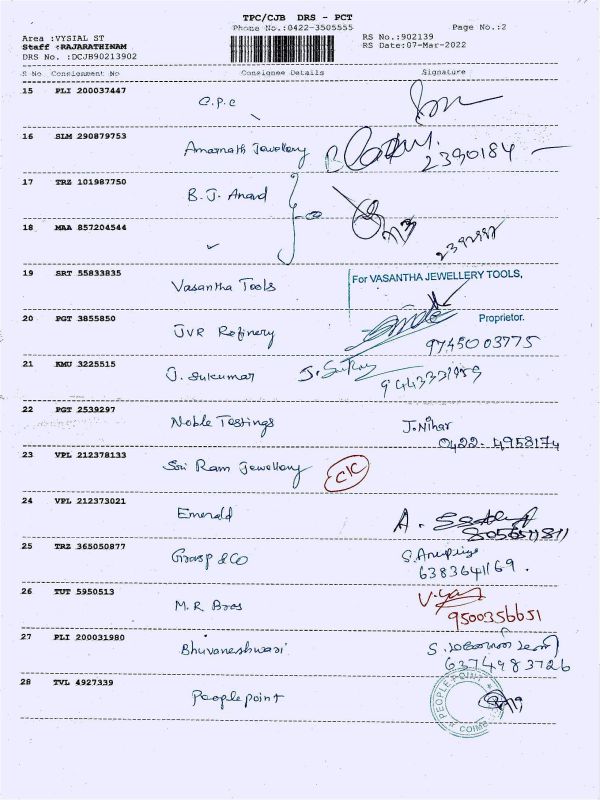 TPC/CJB DRS - PCT
Phone No.:0422-3505555
Page No.:2
Area :VYSIAL ST
Staff :RAJARATHINAM
DRS No. :DCJB90213902
RS No.:902139
RS Date:07-Mar-2022
S No Consignment No Consignee Details Signature
15 PLI 200037447 C.P.C
16 SLM 290879753 Amarnath Jewellery 2390184
17 TRZ 101987750 B.J. Anand
18 MAA 857204544
19 SRT 55833835 Vasantha Tools For VASANTHA JEWELLERY TOOLS,
Proprietor.
20 PGT 3855850 JVR Refinery 9745003775
21 KMU 3225515 J. Sukumar
22 PGT 2539297 Noble Testings J.Nihar
0422-4958174
23 VPL 212378133 Sri Ram Jewellery CIC
24 VPL 212373021 Emerald A.
25 TRZ 365050877 Grasp & Co S.Anupriya
6383641169.
26 TUT 5950513 M.R Bros
9500356651
27 PLI 200031980 Bhuvaneshwari
6374983726
28 TVL 4927339 Peoplepoint PEOPLE POINT